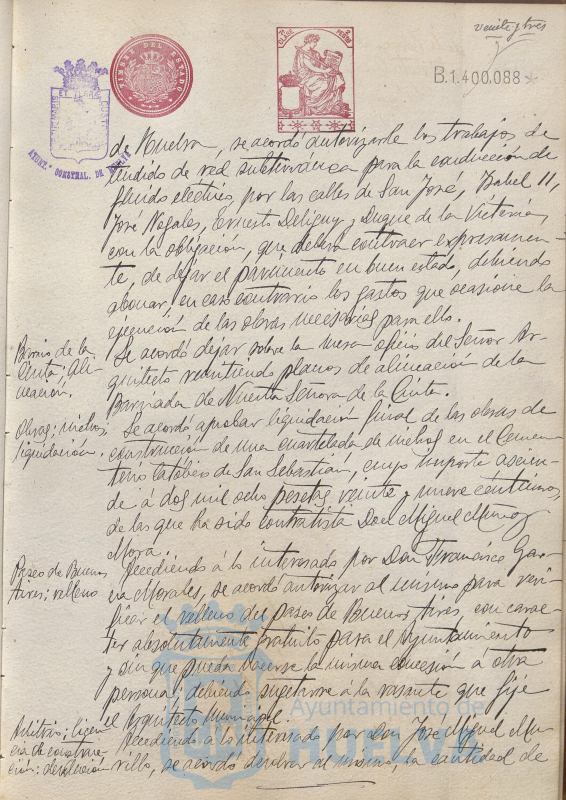 veinte y tres
TIMBRE DEL ESTADO
B.1.400.088*
AYUNT.º CONSTNAL. DE HUELVA
de Huelva, se acordó autorizarle los trabajos de
tendido de red subterránea para la conducción de
fluido electrico, por las calles de San José, Isabel II,
José Nogales, Ernesto Deligny y Duque de la Victoria,
con la obligación, que deberá contraer expresamen-
te, de dejar el pavimento en buen estado, debiendo
abonar, en caso contrario los gastos que ocasione la
ejecución de las obras necesarias para ello.
Barrio de la
Cinta; ali-
neación.
Se acordó dejar sobre la mesa oficio del Señor Ar-
quitecto remitiendo planos de alineación de la
Barriada de Nuestra Señora de la Cinta.
Obras; nichos;
liquidación.
Se acordó aprobar liquidación final de las obras de
construcción de una cuartelada de nichos en el Cemen-
terio Católico de San Sebastian, cuyo importe ascien-
de á dos mil ocho pesetas veinte y nueve centimos,
de las que ha sido contratista Don Miguel Muñoz
Mora.
Paseo de Buenos
Aires; relleno
Accediendo á lo interesado por Don Francisco Gar-
cia Morales, se acordó autorizar al mismo para veri-
ficar el relleno del paseo de Buenos Aires, con carac-
ter absolutamente gratuito para el Ayuntamiento
y sin que pueda hacerse la misma concesión á otra
persona; debiendo sujetarse á la rasante que fije
el Arquitecto Municipal.
Arbitrios; licen-
cia de construc-
ción: devolución
Accediendo á lo interesado por Don José Miguel Mu-
rillo, se acordó devolver al mismo, la cantidad de
Ayuntamiento de
HUELVA